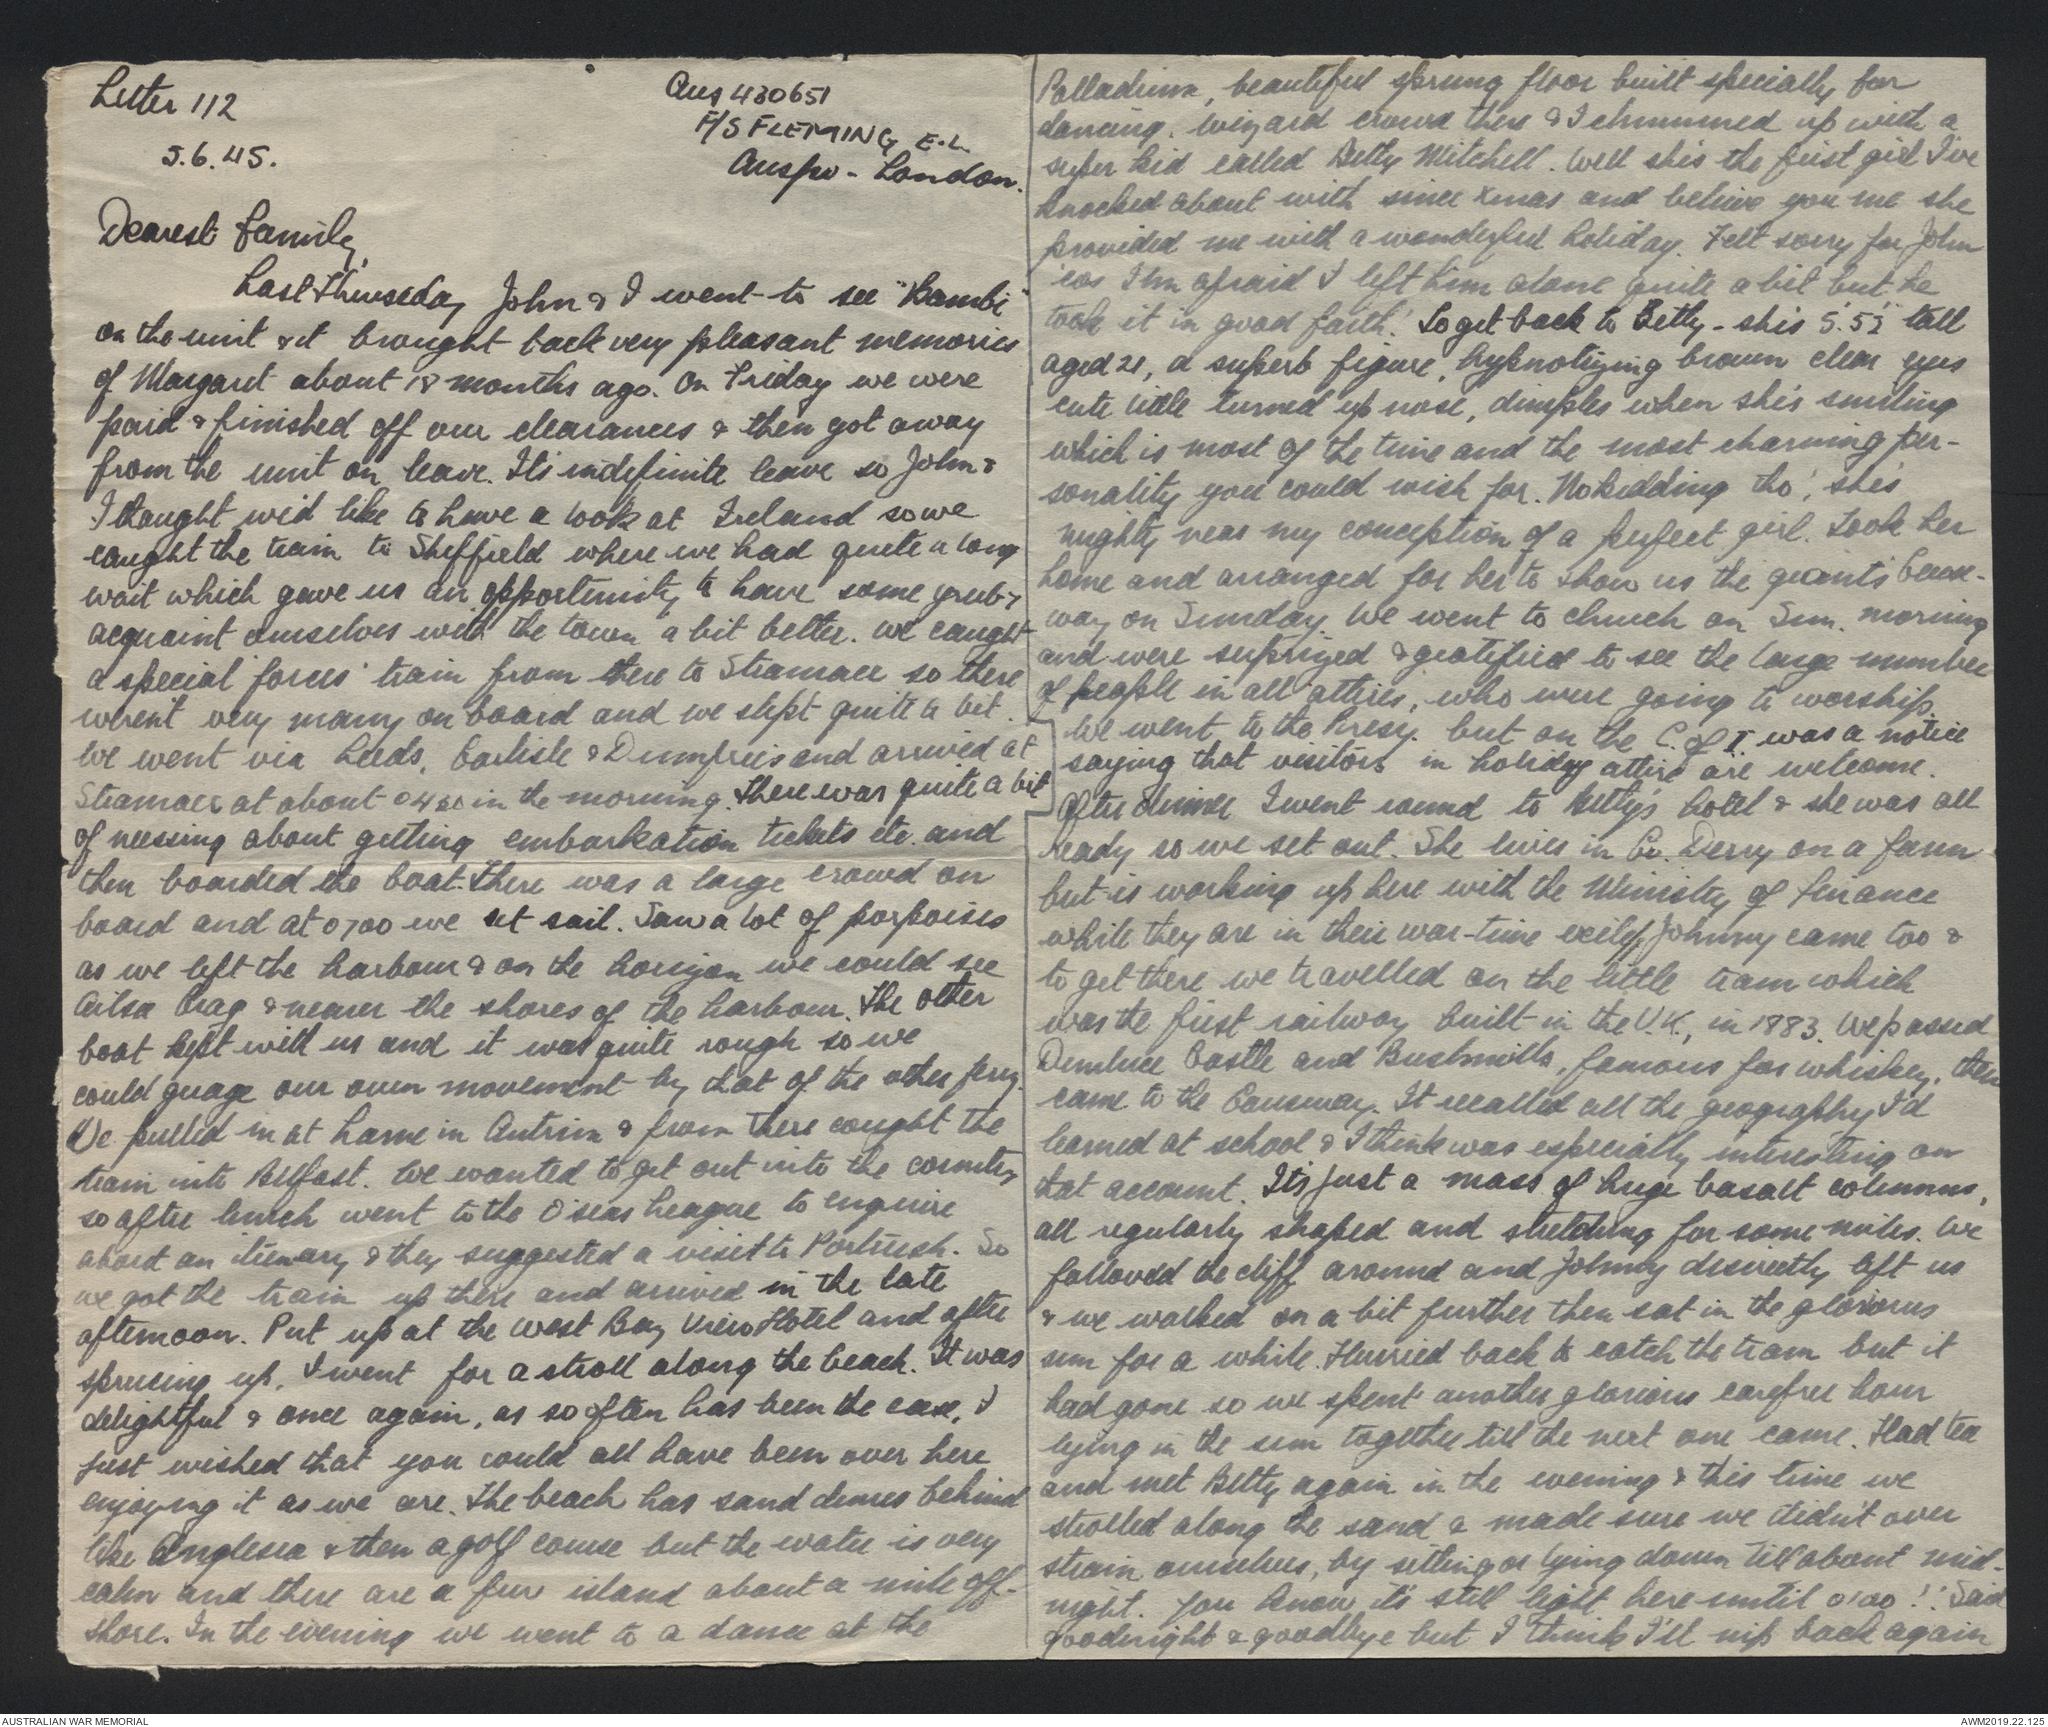 Letter 112
5.6.45.
Aus 430651
F/S FLEMING E.L.
Auspo - London.
Dearest Family,
Last Thurseday John & I went to see "Bambi"
on the unit & it brought back very pleasant memories
of Margaret about 18 months ago. On Friday we were
paid & finished off our clearances & then got away
from the unit on leave. It's indefinite leave so John &
I thought we'd like to have a look at Ireland so we
caught the train to Sheffield where we had quite a long
wait which gave us an opportunity to have some grub &
acquaint ourselves with the town a bit better. We caught
a special forces' train from there to Stranraer so there
weren't very many on board and we slept quite a bit.
We went via Leeds, Carlisle & Dumfries and arrived at
Stranraer at about 0430 in the morning. There was quite a bit
of messing about getting embarkation tickets etc. and
then boarded the boat. There was a large crowd on
board and at 0700 we set sail. Saw a lot of porpoises
as we left the harbour & on the horizon we could see
Ailsa Crag & nearer the shores of the harbour. The other
boat kept with us and it was quite rough so we
could guage our own movement by that of the other ferry.
We pulled in at Larne in Antrim & from there caught the
train into Belfast. We wanted to get out into the country
so after lunch went to the O'seas League to enquire
about an itinerary & they suggested a visit to Portrush. So
we got the train up there and arrived in the late
afternoon. Put up at the West Bay View Hotel and after
sprucing up, I went for a stroll along the beach. It was
delightful & once again, as so often has been the case, I
just wished that you could all have been over here
enjoying it as we are. The beach has sand dunes behind
like Anglesea & then a golf course but the water is very
calm and there are a few island about a mile off-
shore. In the evening we went to a dance at the
Palladium, beautiful sprung floor built specially for
dancing. Wizard crowd there & I chummed up with a
super kid called Betty Mitchell. Well she's the first girl I've
knocked about with since Xmas and believe you me she
provided me with a wonderful holiday. Felt sorry for John
'cos I'm afraid I left him alone quite a bit but he
took it in good faith! To get back to Betty - she's 5'.5½" tall
aged 21, a superb figure, hypnotizing brown clear eyes
cute little turned up nose, dimples when she's smiling
which is most of the time and the most charming per-
sonality you could wish for. No kidding tho', she's
mighty near my conception of a perfect girl. Took her
home and arranged for her to show us the giants Cause-
way on Sunday. We went to church on Sun. morning
and were suprized & gratified to see the large number
of people in all attires, who were going to worship.
We went to the Presy. but on the C. of I. was a notice
saying that visitors in holiday attire are welcome.
After dinner I went round to Betty's hotel & she was all
ready so we set out. She lives in Co. Derry on a farm
but is working up here with the Ministry of Finance
while they are in their war-time exile. Johnny came too &
to get there we travelled on the little tram which
was the first railway built in the U.K., in 1883. We passed
Dunluce Castle and Bushmills, famous for whiskey, then
came to the Causeway. It recalled all the geography I'd
learned at school & I think was especially interesting on
that account. It's just a mass of huge basalt columns,
all regularly shaped and stretching for some miles. We
followed the cliff around and Johnny discreetly left us
& we walked on a bit further then sat in the glorious
sun for a while. Hurried back to catch the tram but it
had gone so we spent another glorious carefree hour
lying in the sun together till the next one came. Had tea
and met Betty again in the evening & this time we
strolled along the sand & made sure we didn't over
strain ourselves, by sitting or lying down till about mid-
night. You know it's still light here until 0100!! Said
goodnight & goodbye but I think I'll nip back again
AUSTRALIAN WAR MEMORIAL
AWM2019.22.125